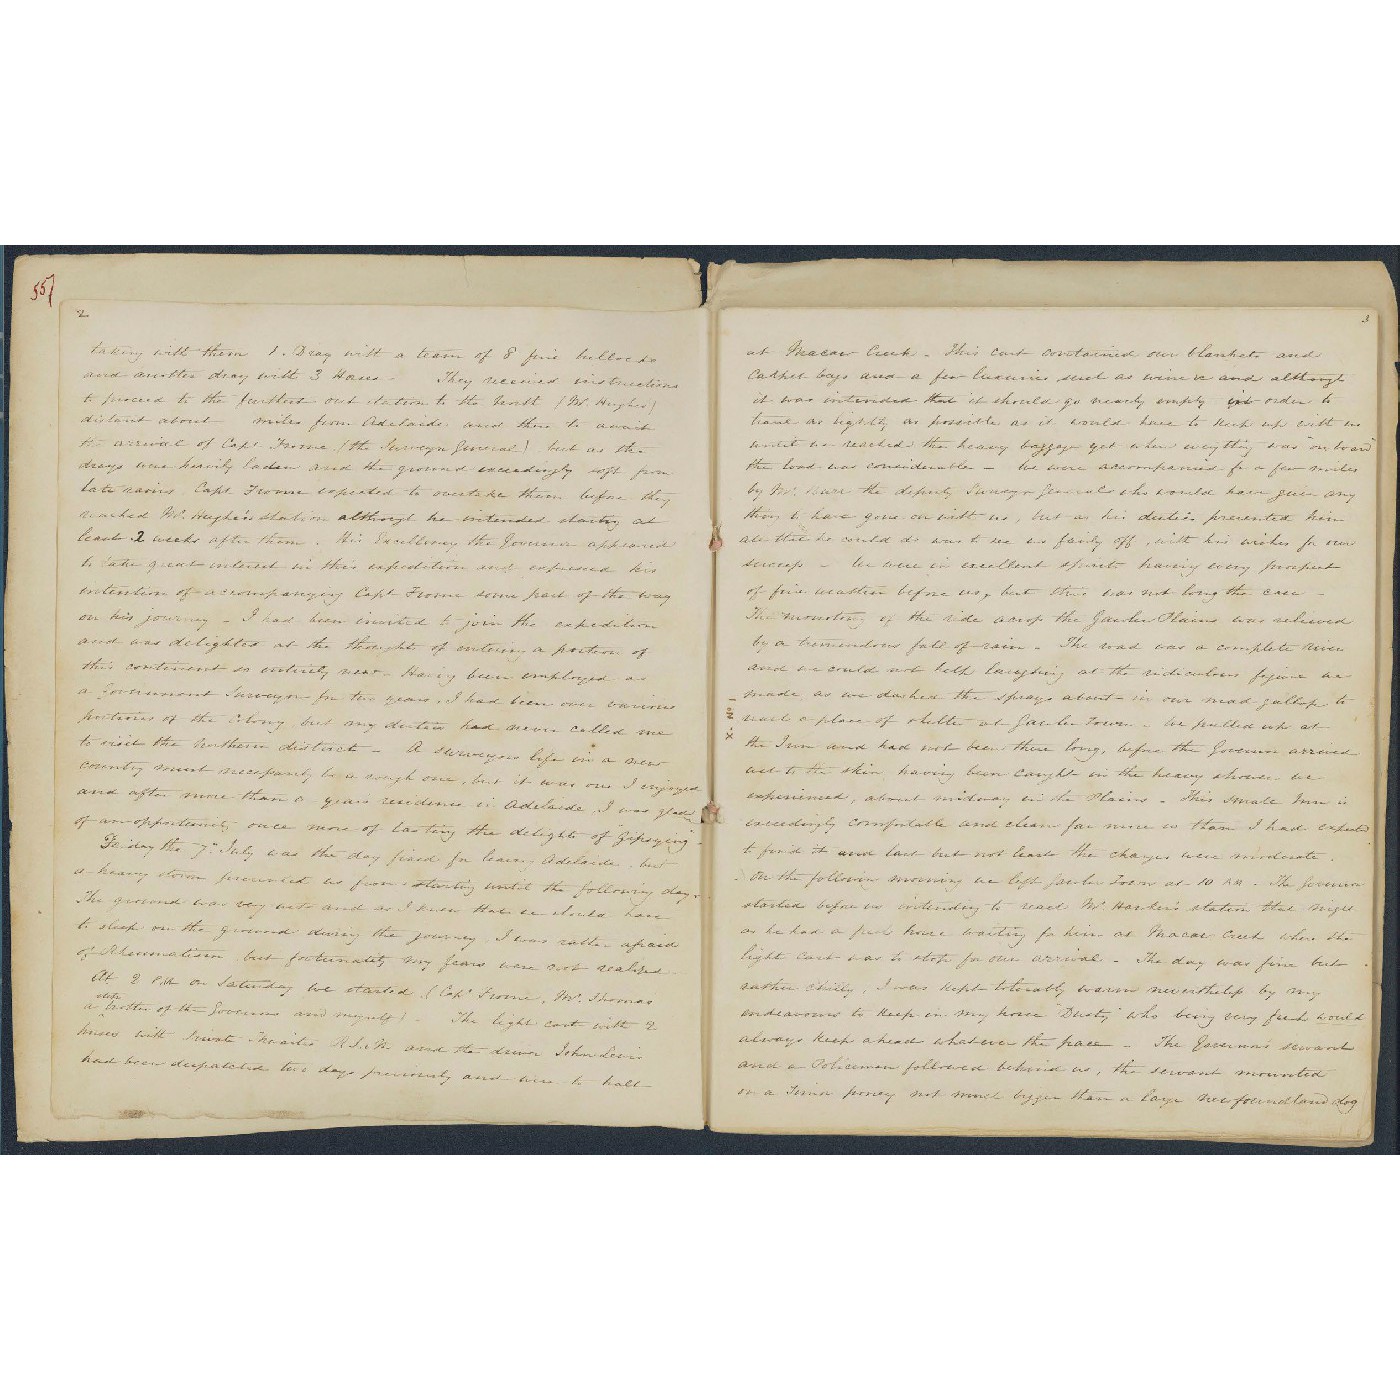 557
2
taking with them 1. Dray with a team of 8 fine bullocks
and another dray with 3 Horses - They received instructions
to proceed to the furthest out station to the North (Mr. Hughes)
distant about miles from Adelaide and there to await
the arrival of Capt Frome (the Surveyor General) but as the
drays were heavily laden and the ground exceedingly soft from
late rains, Capt Frome expected to overtake them before they
reached Mr. Hughes's station although he intended starting at
least 2 weeks after them. His Excellency the Governor appeared
to take great interest in this expedition and expressed his
intention of accompanying Capt Frome some part of the way
on his journey - I had been invited to join the expedition
and was delighted at the thought of entering a portion of
this continent so entirely new - Having been employed as
a Government Surveyor for two years, I had been over various
portions of the Colony but my duties had never called me
to visit the Northern district - A surveyors life in a new
country must necessarily be a rough one, but it was one I enjoyed
and after more than a years residence in Adelaide, I was glad
of an opportunity once more of tasting the delights of "Gipsying" -
Friday the 7th July was the day fixed for leaving Adelaide, but
a heavy storm prevented us from starting until the following day -
The ground was very wet and as I knew that we should have
to sleep on the ground during the journey I was rather afraid
of Rheumatism but fortunately my fears were not realized -
At 2 P.M on Saturday we started (Capt Frome, Mr. Thomas
a brother of the Governor and myself) - The light cart with 2
horses with Private R.S.&M and the driver John Lewis
had been despatched two days previously and were to halt
3
at Macaw Creek - This cart contained our blankets and
Carpet bags and a few luxuries such as wine &c and although
it was intended that it should go nearly empty in order to
travel as lightly as possible as it would have to keep up with us
until we reached the heavy baggage yet when everything was "on board"
the load was considerable - We were accompanied for a few miles
by Mr. Burr the deputy Surveyor General who would have given any
thing to have gone on with us, but as his duties prevented him
all that he could do was to see us fairly off, with his wishes for our
success - We were in excellent spirits having every prospect
of fine weather before us, but this was not long the case -
The monotony of the ride across the Gawler Plains was relieved
by a tremendous fall of rain - The road was a complete river
and we could not help laughing at the ridiculous figure we
made, as we dashed the sprays about in our mad gallop to
reach a place of shelter at Gawler Town - We pulled up at
the Inn and had not been there long, before the Governor arrived
wet to the skin, having been caught in the heavy shower we
experienced, about midway in the Plains - This small Inn is
exceedingly comfortable and clean far more so than I had expected
to find it and last but not least the charges were moderate.
On the following morning we left Gawler Town at 10 AM - The Governor
started before us intending to reach Mr. Hawker's station that night
as he had a fresh horse waiting for him at Macaw Creek where the
light cart was to stop for our arrival - The day was fine but
rather chilly, I was kept tolerably warm nevertheless by my
endeavours to keep in my horse "Dusty" who being very fresh would
always keep ahead whatever the pace - The Governor's servant
and a Policeman followed behind us, the servant mounted
on a Timor poney not much bigger than a large newfoundland dog
X. No 1